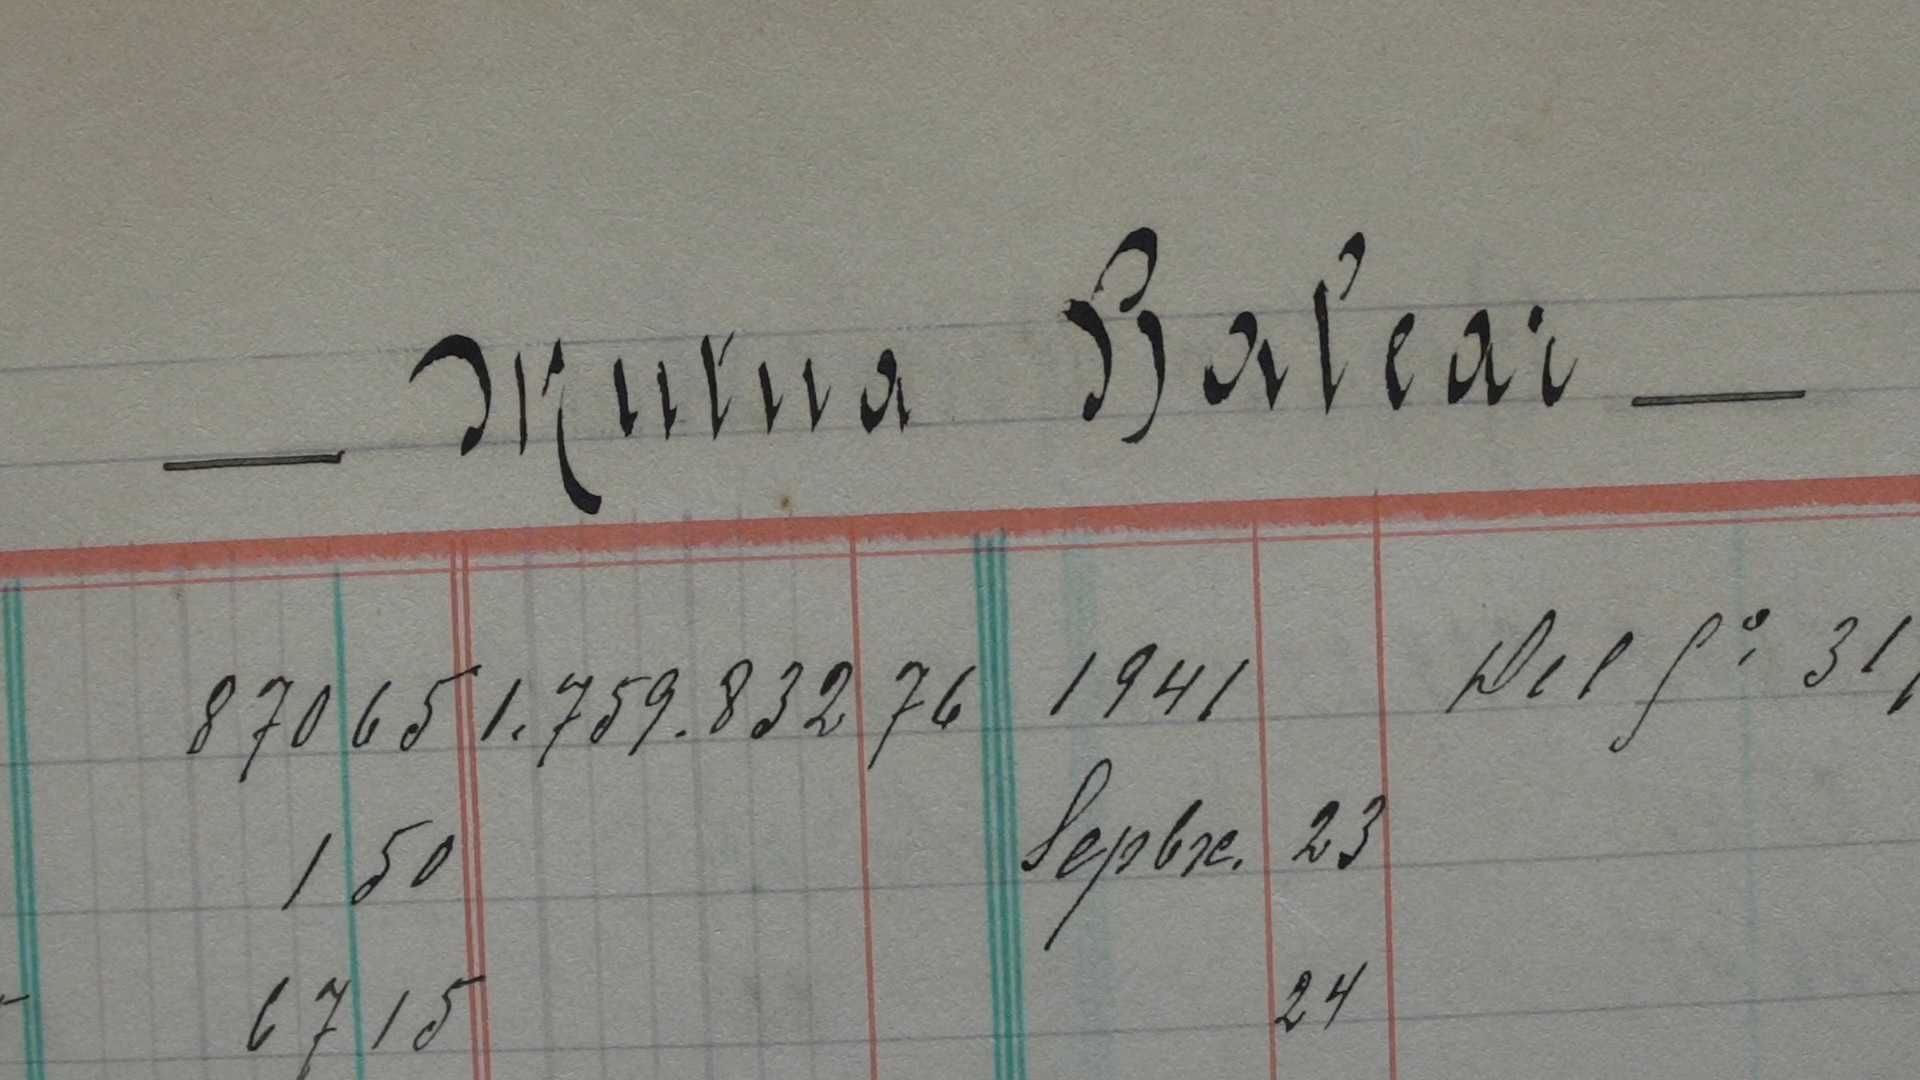 — Mutua Balear —
870 65 1.759.832 76 1941 Del fº 31
1 50 Sepbre. 23
67 15 24